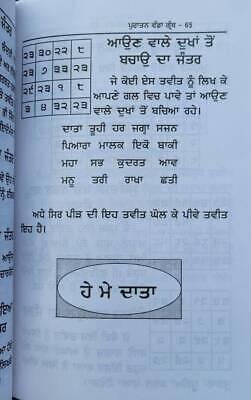 ਪੁਰਾਤਨ ਵੱਡਾ ਗ੍ਰੰਥ - 65
ਆਉਣ ਵਾਲੇ ਦੁਖਾਂ ਤੋਂ
ਬਚਾਉ ਦਾ ਜੰਤਰ
ਜੇ ਕੋਈ ਏਸ ਤਵੀਤ ਨੂੰ ਲਿਖ ਕੇ
ਆਪਣੇ ਗਲ ਵਿਚ ਪਾਵੇ ਤਾਂ ਆਉਣ
ਵਾਲੇ ਦੁਖਾਂ ਤੋਂ ਬਚਿਆ ਰਹੇ।
੨੩ ੩੦ ੨੨ ੮
੨੩ ੭ ੩੩ ੨੨
੨੯ ੨੩ ੧ ੮
੩ ੪ ੩੨ ੨੩
ਦਾਤਾ ਤੂਹੀ ਹਰ ਜਗ੍ਹਾ ਸਜਨ
ਪਿਆਰਾ ਮਾਲਕ ਇਕੋ ਬਾਕੀ
ਮਹਾ ਸਭ ਕੁਦਰਤ ਆਵ
ਮਨੂ ਤਰੀ ਰਾਖਾ ਛਤੀ
ਅਧੇ ਸਿਰ ਪੀੜ ਦੀ ਇਹ ਤਵੀਤ ਘੋਲ ਕੇ ਪੀਵੇ ਤਵੀਤ
ਇਹ ਹੈ।
ਹੇ ਮੇ ਦਾਤਾ